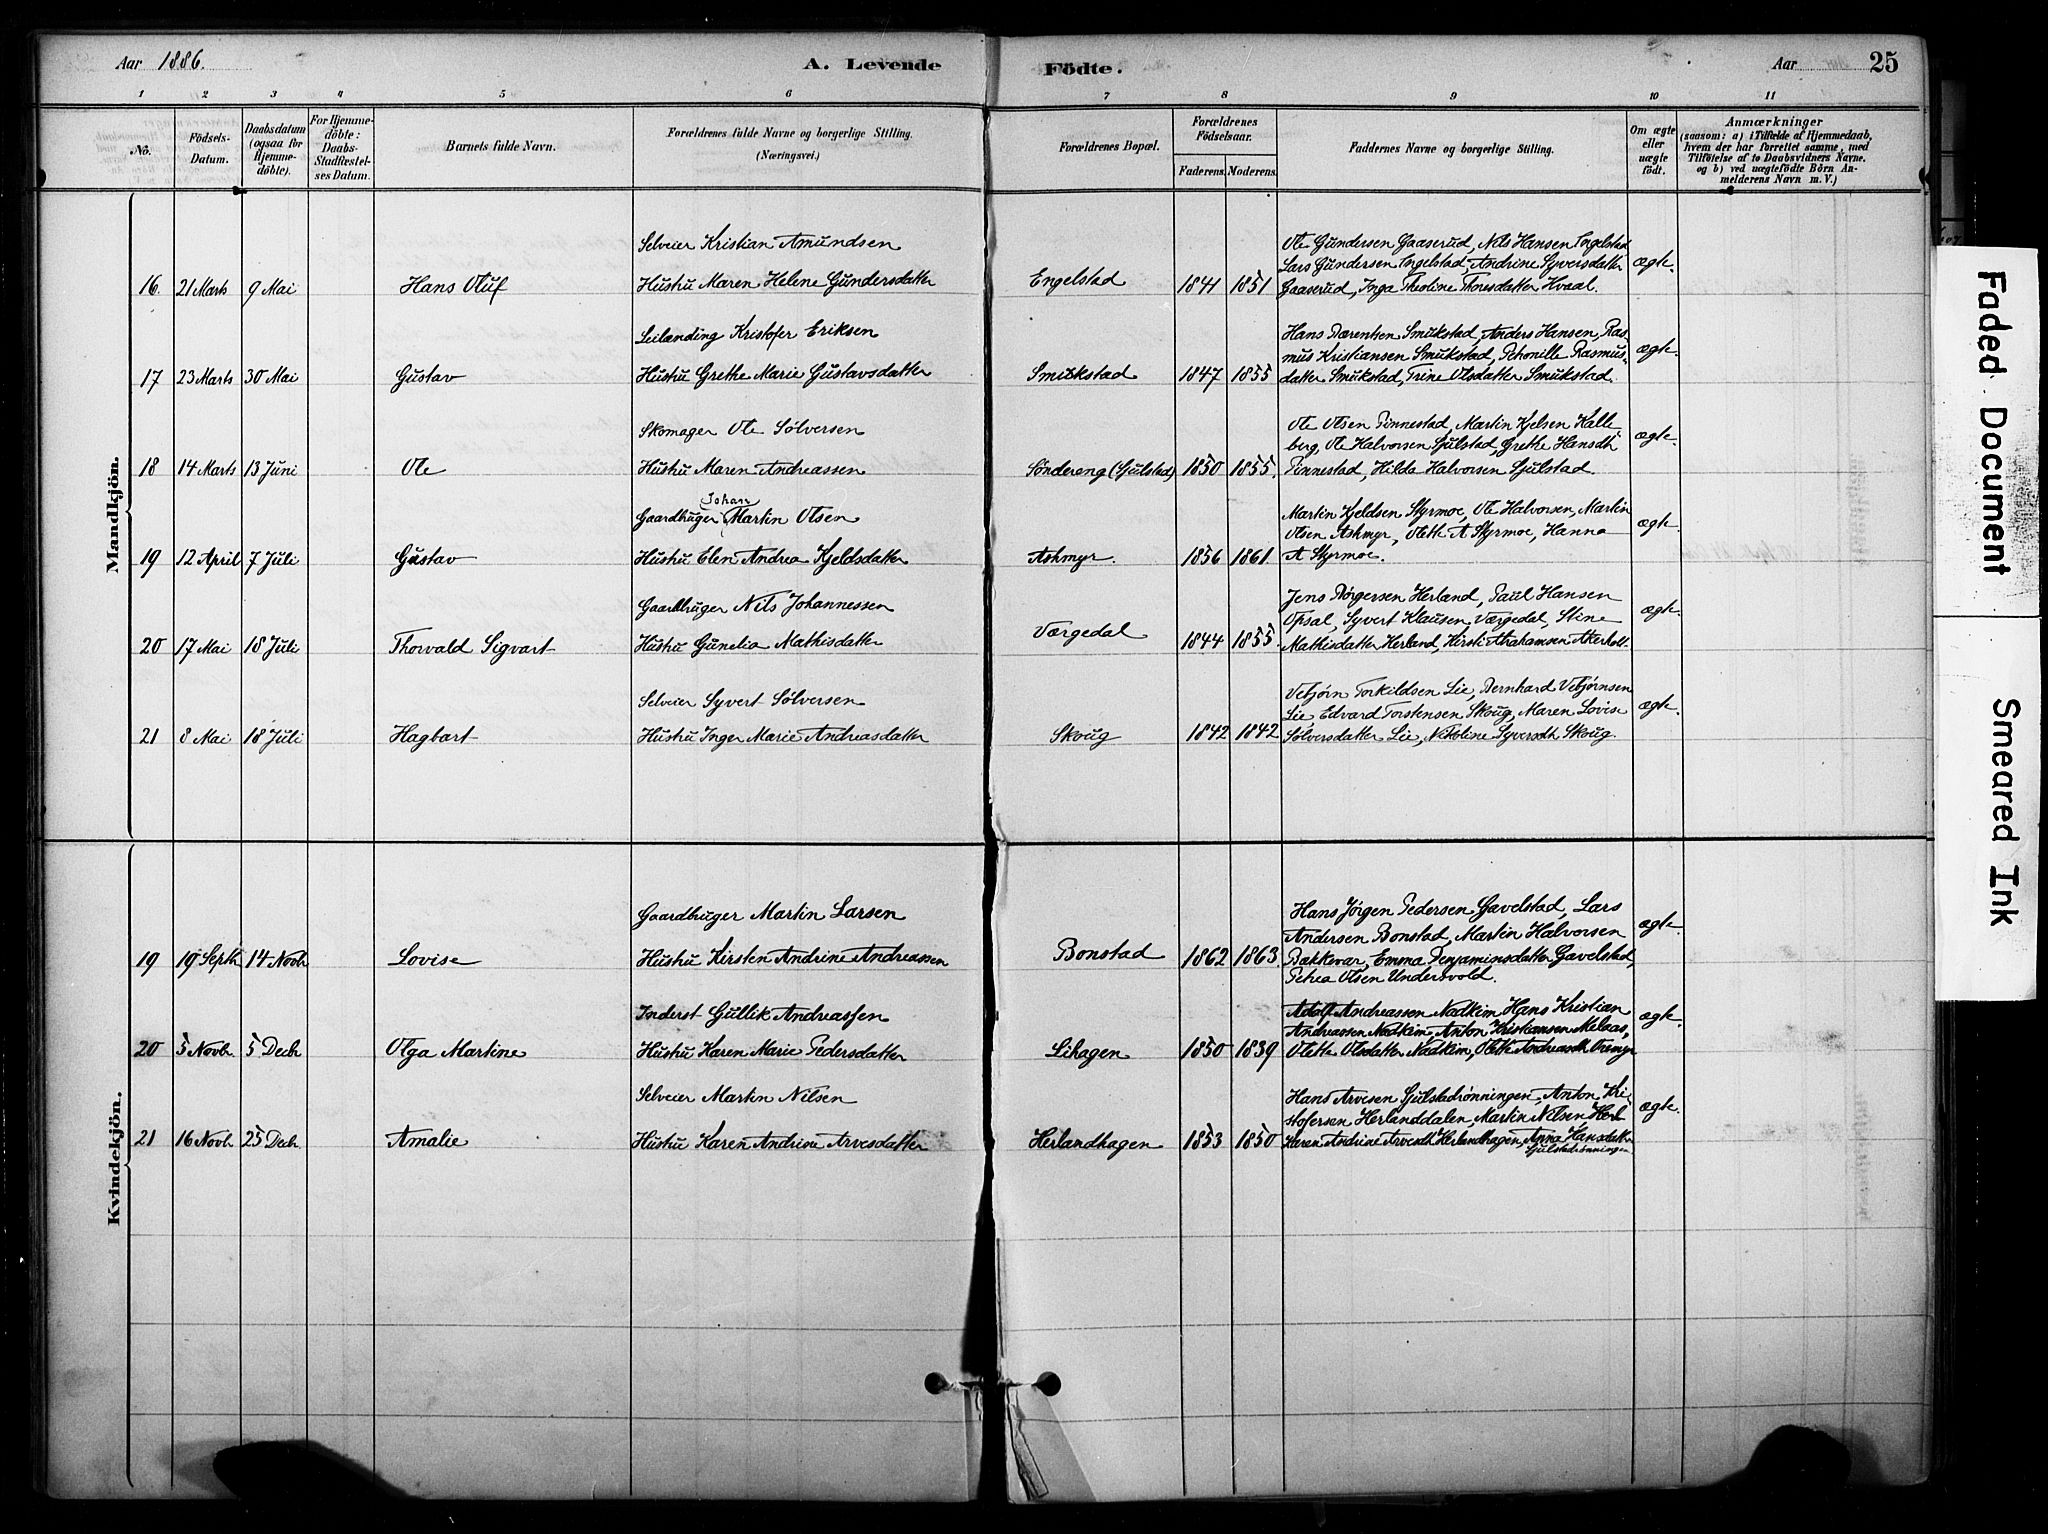 Aar 1886.
A. Levende
Födte.
Aar
25
1 2 3 4 5 6 7 8 9 10 11
No.
Födsels-
Datum.
Daabsdatum
(ogsaa for
Hjemme-
döbte).
For Hjemme-
döbte:
Daabs-
Stadfæstel-
ses Datum.
Barnets fulde Navn.
Forældrenes fulde Navne og borgerlige Stilling.
(Næringsvei.)
Forældrenes Bopæl.
Forældrenes
Födselsaar.
Faderens. Moderens.
Faddernes Navne og borgerlige Stilling.
Om ægte
eller
uægte
födt.
Anmærkninger
(saasom: a) i Tilfælde af Hjemmedaab,
hvem der har forrettet samme, med
Tilföielse af to Daabsvidners Navne.
og b) ved uægtefödte Börn An-
melderens Navn m. V.)
Mandkjön.
16 21 Marts 9 Mai Hans Oluf
Selveier Kristian Amundsen
Hustru Maren Helene Gundersdatter
Engelstad 1841 1851
Ole Gundersen Gaaserud, Nils Hansen Engelstad
Lars Gundersen Engelstad, Andrine Syversdatter
Gaaserud, Inga Theoline Thoresdatter Hvaal.
ægte.
17 23 Marts 30 Mai Gustav
Leilænding Kristofer Eriksen
Hustru Grethe Marie Gustavsdatter
Smukstad 1847 1855
Hans Bærentsen Smukstad, Anders Hansen, Ras-
mus Kristiansen Smukstad, Pehonille Rasmus-
datter Smukstad, Trine Olsdatter Smukstad.
ægte.
18 14 Marts 13 Juni Ole
Skomager Ole Sölversen
Hustru Maren Andreassen
Söndereng (Gjulstad) 1850 1855.
Ole Olsen Pinnestad, Martin Kjelsen Kalle-
berg, Ole Halvorsen Gjulstad, Grethe Hansdtr
Pinnestad, Hilda Halvorsen Gjulstad
ægte.
19 12 April 7 Juli Gustav
Johan
Gaardbruger Martin Olsen
Hustru Elen Andrea Kjeldsdatter
Askmyr. 1856 1861.
Martin Kjeldsen Styrmoe, Ole Halvorsen, Martin
Olsen Askmyr, Olette A Styrmoe, Hanna
A Styrmoe.
ægte.
20 17 Mai 18 Juli Thorvald Sigvart
Gaardbruger Nils Johannessen
Hustru Gunelia Mathisdatter
Værgedal 1844 1855.
Jens Börgersen Herland, Paul Hansen
Opsal, Syvert Klausen Værgedal, Stine
Mathisdatter Herland, Kirsti Abrahamsen Akerholt.
ægte.
21 8 Mai 18 Juli Hagbart
Selveier Syvert Sölversen
Hustru Inger Marie Andreasdatter
Skoug 1842 1842
Vebjörn Torkildsen Lie, Bernhard Vebjörnsen
Lie, Edvard Torstensen Skoug, Maren Lovise
Sölversdatter Lie, Nikoline Syversdtr Skoug.
ægte.
Kvindekjön.
19 19 Septbr 14 Novbr Lovise
Gaardbruger Martin Larsen
Hustru Kirsten Andrine Andreassen
Bonstad 1862 1863
Hans Jörgen Pedersen Gavelstad, Lars
Andersen Bonstad, Martin Halvorsen
Bækkevar, Emma Benjaminsdatter Gavelstad,
Petrea Olsen Undersvold.
ægte.
20 5 Novbr. 5 Decbr Olga Martine
Inderst Gullik Andreassen
Hustru Karen Marie Pedersdatter
Lihagen 1850 1839
Adolf Andreassen Nadkim Hans Kristian
Andreassen Nadkim, Anton Kristiansen Melaas,
Olette Olsdatter Nadkim, Olette Andreasdtr Oremyr
ægte.
21 16 Novbr. 25 Decbr. Amalie
Selveier Martin Nilsen
Hustru Karen Andrine Arvesdatter
Herlandhagen 1853 1850
Hans Arvesen Gjulstadrönningen, Anton Kri-
stofersen Herlanddalen, Martin Nilsen Herl
Karen Andrine Arvesdtr Herlandhagen, Anna Hansdatter
Gjulstadrönningen
ægte.
Faded Document
Smeared Ink